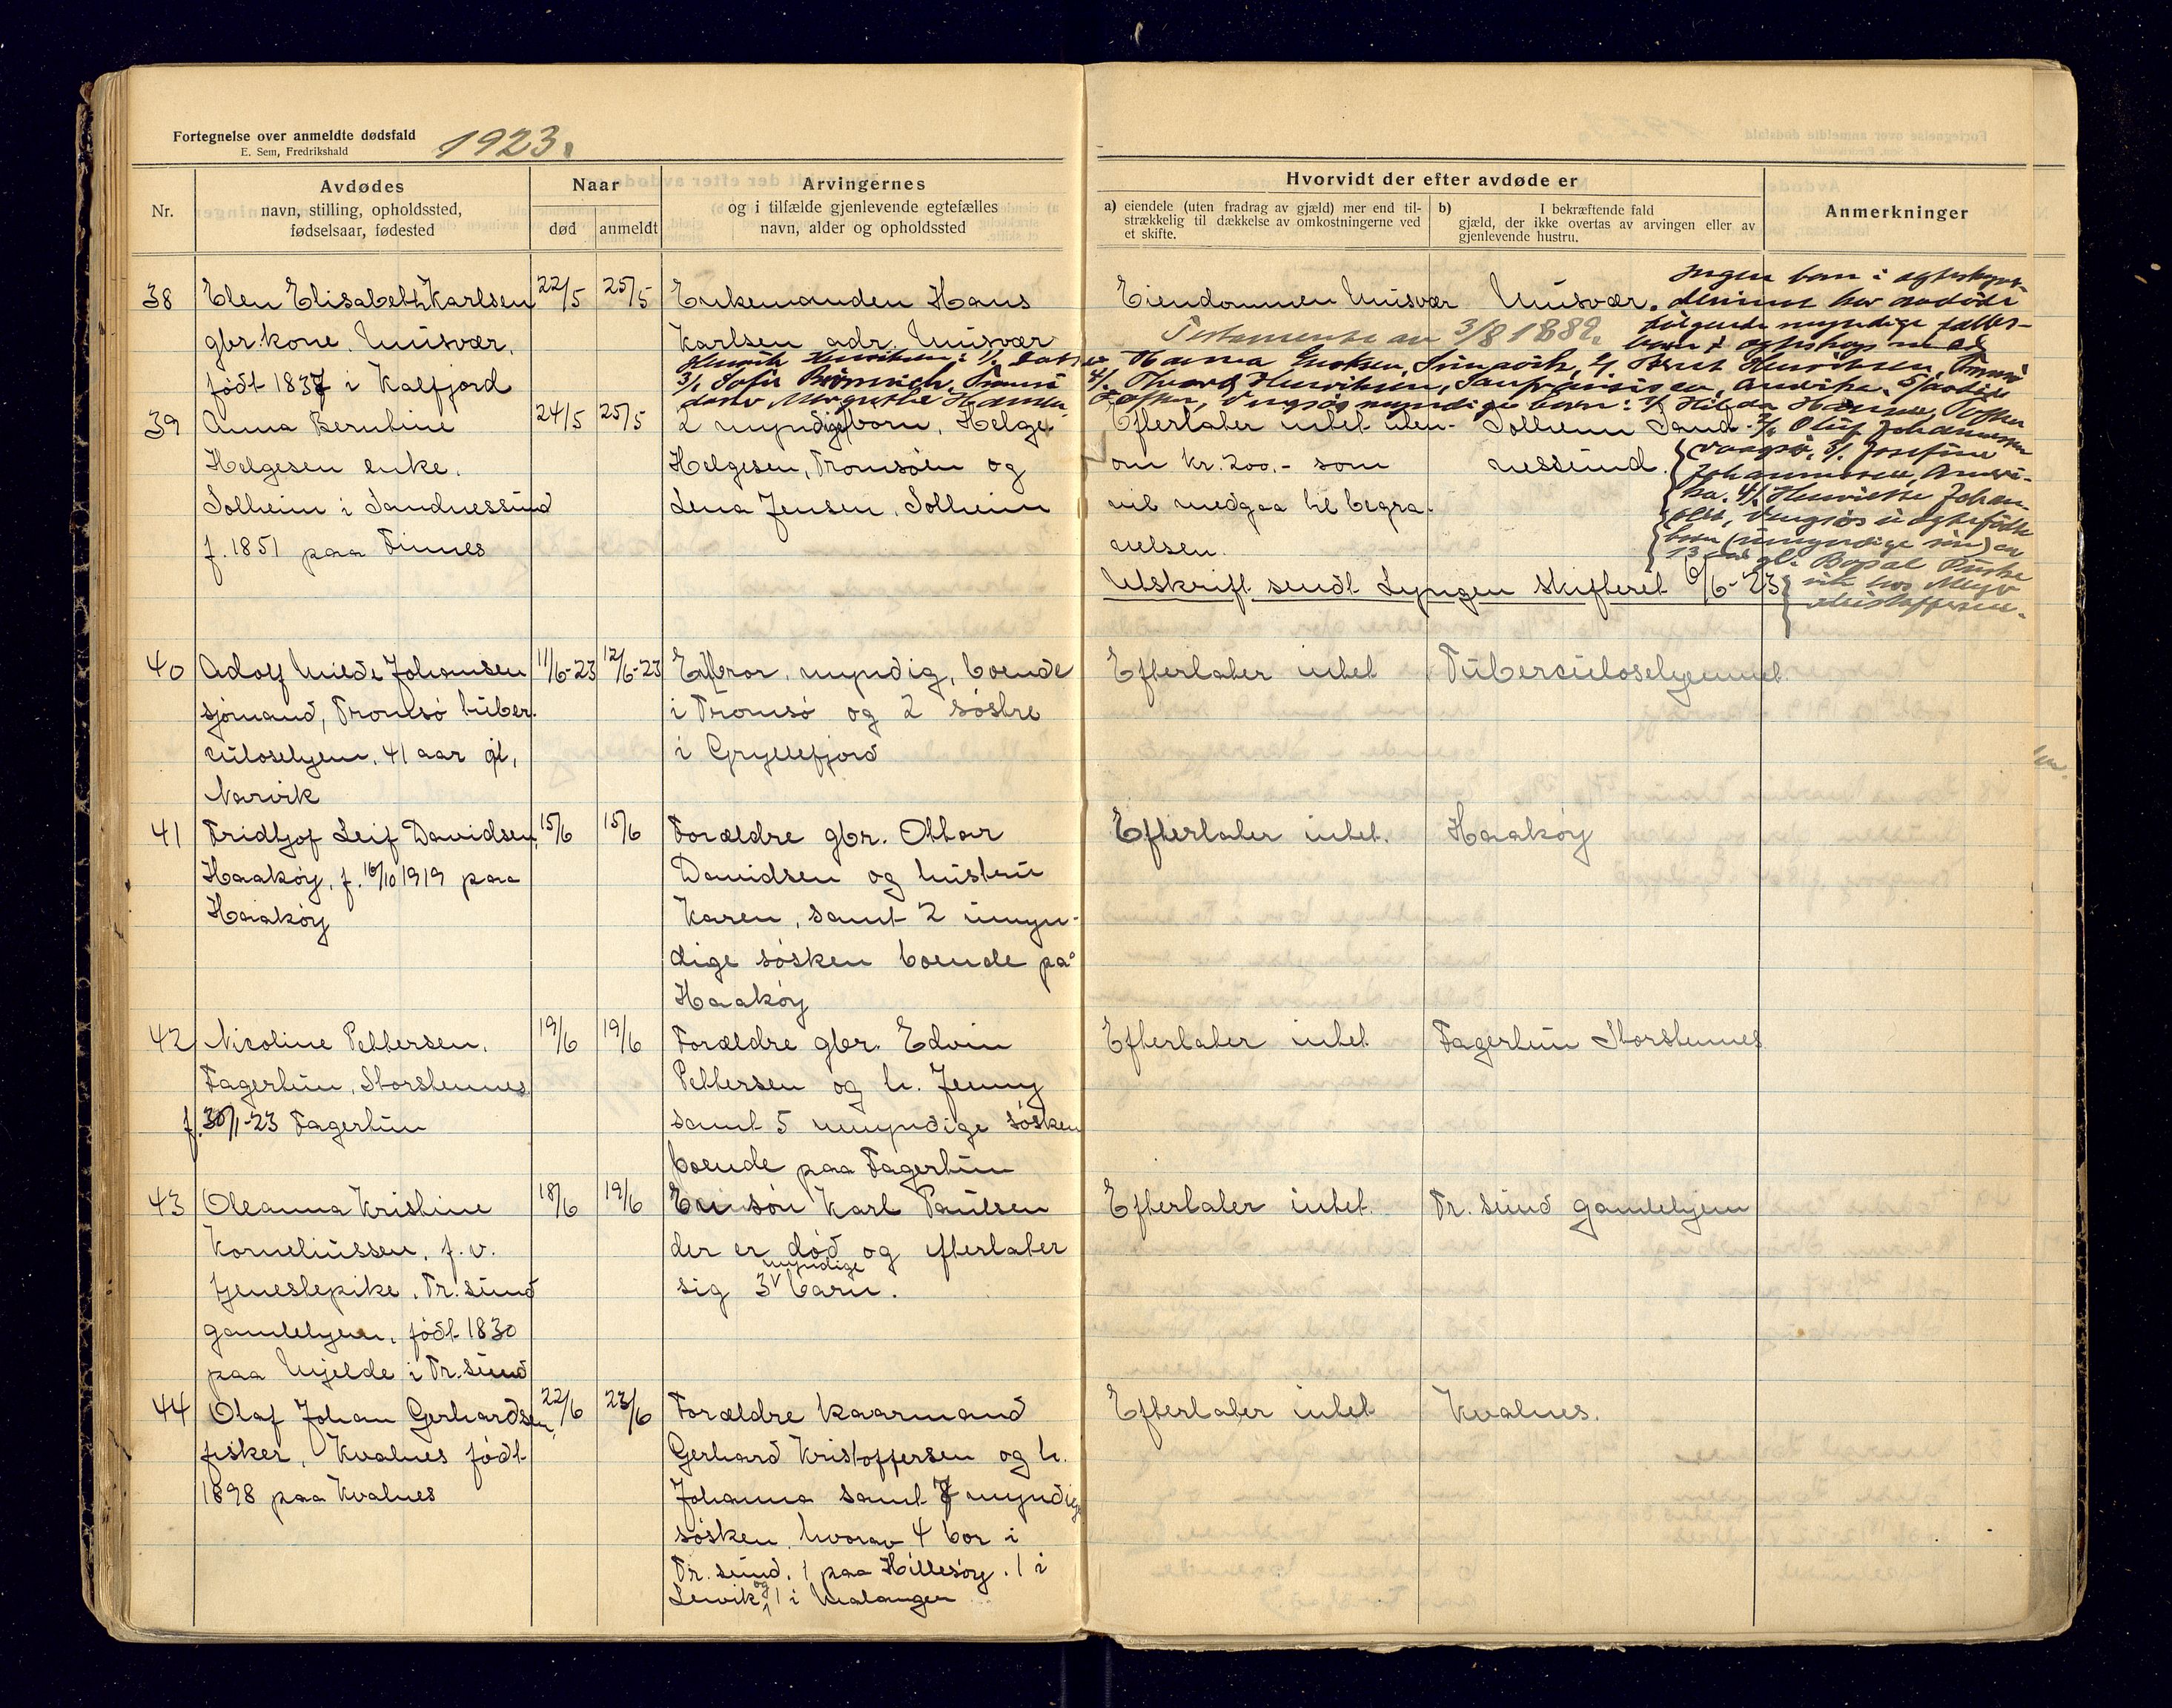 Fortegnelse over anmeldte dødsfald
E. Sem, Fredrikshald
1923.
Nr.
Avdødes
navn, stilling, opholdssted,
fødselsaar, fødested
Naar
død
anmeldt
Arvingernes
og i tilfælde gjenlevende egtefælles
navn, alder og opholdssted
Hvorvidt der efter avdøde er
a) eiendele (uten fradrag av gjæld) mer end til-
strækkelig til dækkelse av omkostningerne ved
et skifte.
b) I bekræftende fald
gjæld, der ikke overtas av arvingen eller av
gjenlevende hustru.
Anmerkninger
38
Elen Elisabeth Karlsen
gbr.kone. Musvær.
født 1837 i Kalfjord
22/5
25/5
Enkemanden Hans
Karlsen adr. Musvær
Eiendommen Musvær
Musvær.
Testamente av 3/8 1882.
Ingen barn i egteskapet.
derimot har avdöde
følgende myndige
Henrik Henriksen
Hanna
3/. Sofie
4/.
Henriksen,
39
Anna Berntine
Helgesen enke.
Solheim i Sandnessund
f. 1851 paa Finnes
24/5
25/5
2 myndige barn, Helge
Helgesen, Tromsöen og
Lena Jensen, Solheim
Efterlater intet uten-
om kr. 200,- som
vil medgaa til begra-
velsen.
Solheim Sand-
nessund.
3/. Josefine
Johannesen, Ameri-
ka. 4/. Henriette Johan
Utskrift sendt Lyngen skifteret 6/6-23
40
Adolf Milde Johansen
sjømand, Tromsö tuber-
culosehjem, 41 aar gl,
Narvik
11/6-23
12/6-23
En bror, myndig, boende
i Tromsö og 2 söstre
i Gryllefjord
Efterlater intet
Tuberculosehjemmet
41
Fridtjof Leif Davidsen,
Haaköy, f. 16/10 1919 paa
Haaköy
15/6
15/6
Forældre gbr. Ottar
Davidsen og hustru
Karen, samt 2 umyn-
dige søsken boende på
Haaköy
Efterlater intet.
Haaköy
42
Nicoline Pettersen,
Fagertun, Storstennes
f. 30/1-23 Fagertun
19/6
19/6
Forældre gbr. Edvin
Pettersen og h. Jenny
samt 5 umyndige søsken
boende paa Fagertun
Efterlater intet
Fagertun Storstennes
43
Oleanna Kristine
Korneliussen, f.v.
tjenestepike, Tr.sund
gamlehjem, født 1830
paa Mjelde i Tr.sund
18/6
19/6
En sön Karl Paulsen
der er død og efterlater
sig 3 myndige barn.
Efterlater intet.
Tr. sund gamlehjem
44
Olaf Johan Gerhardsen,
fisker, Kvalnes født
1898 paa Kvalnes
22/6
23/6
Forældre kaarmand
Gerhard Kristoffersen og h.
Johanna samt 7 myndige
søsken, hvorav 4 bor i
Tr. sund, 1 paa Hillesöy. 1 i
Leivik og 1 i Malangen
Efterlater intet
Kvalnes.